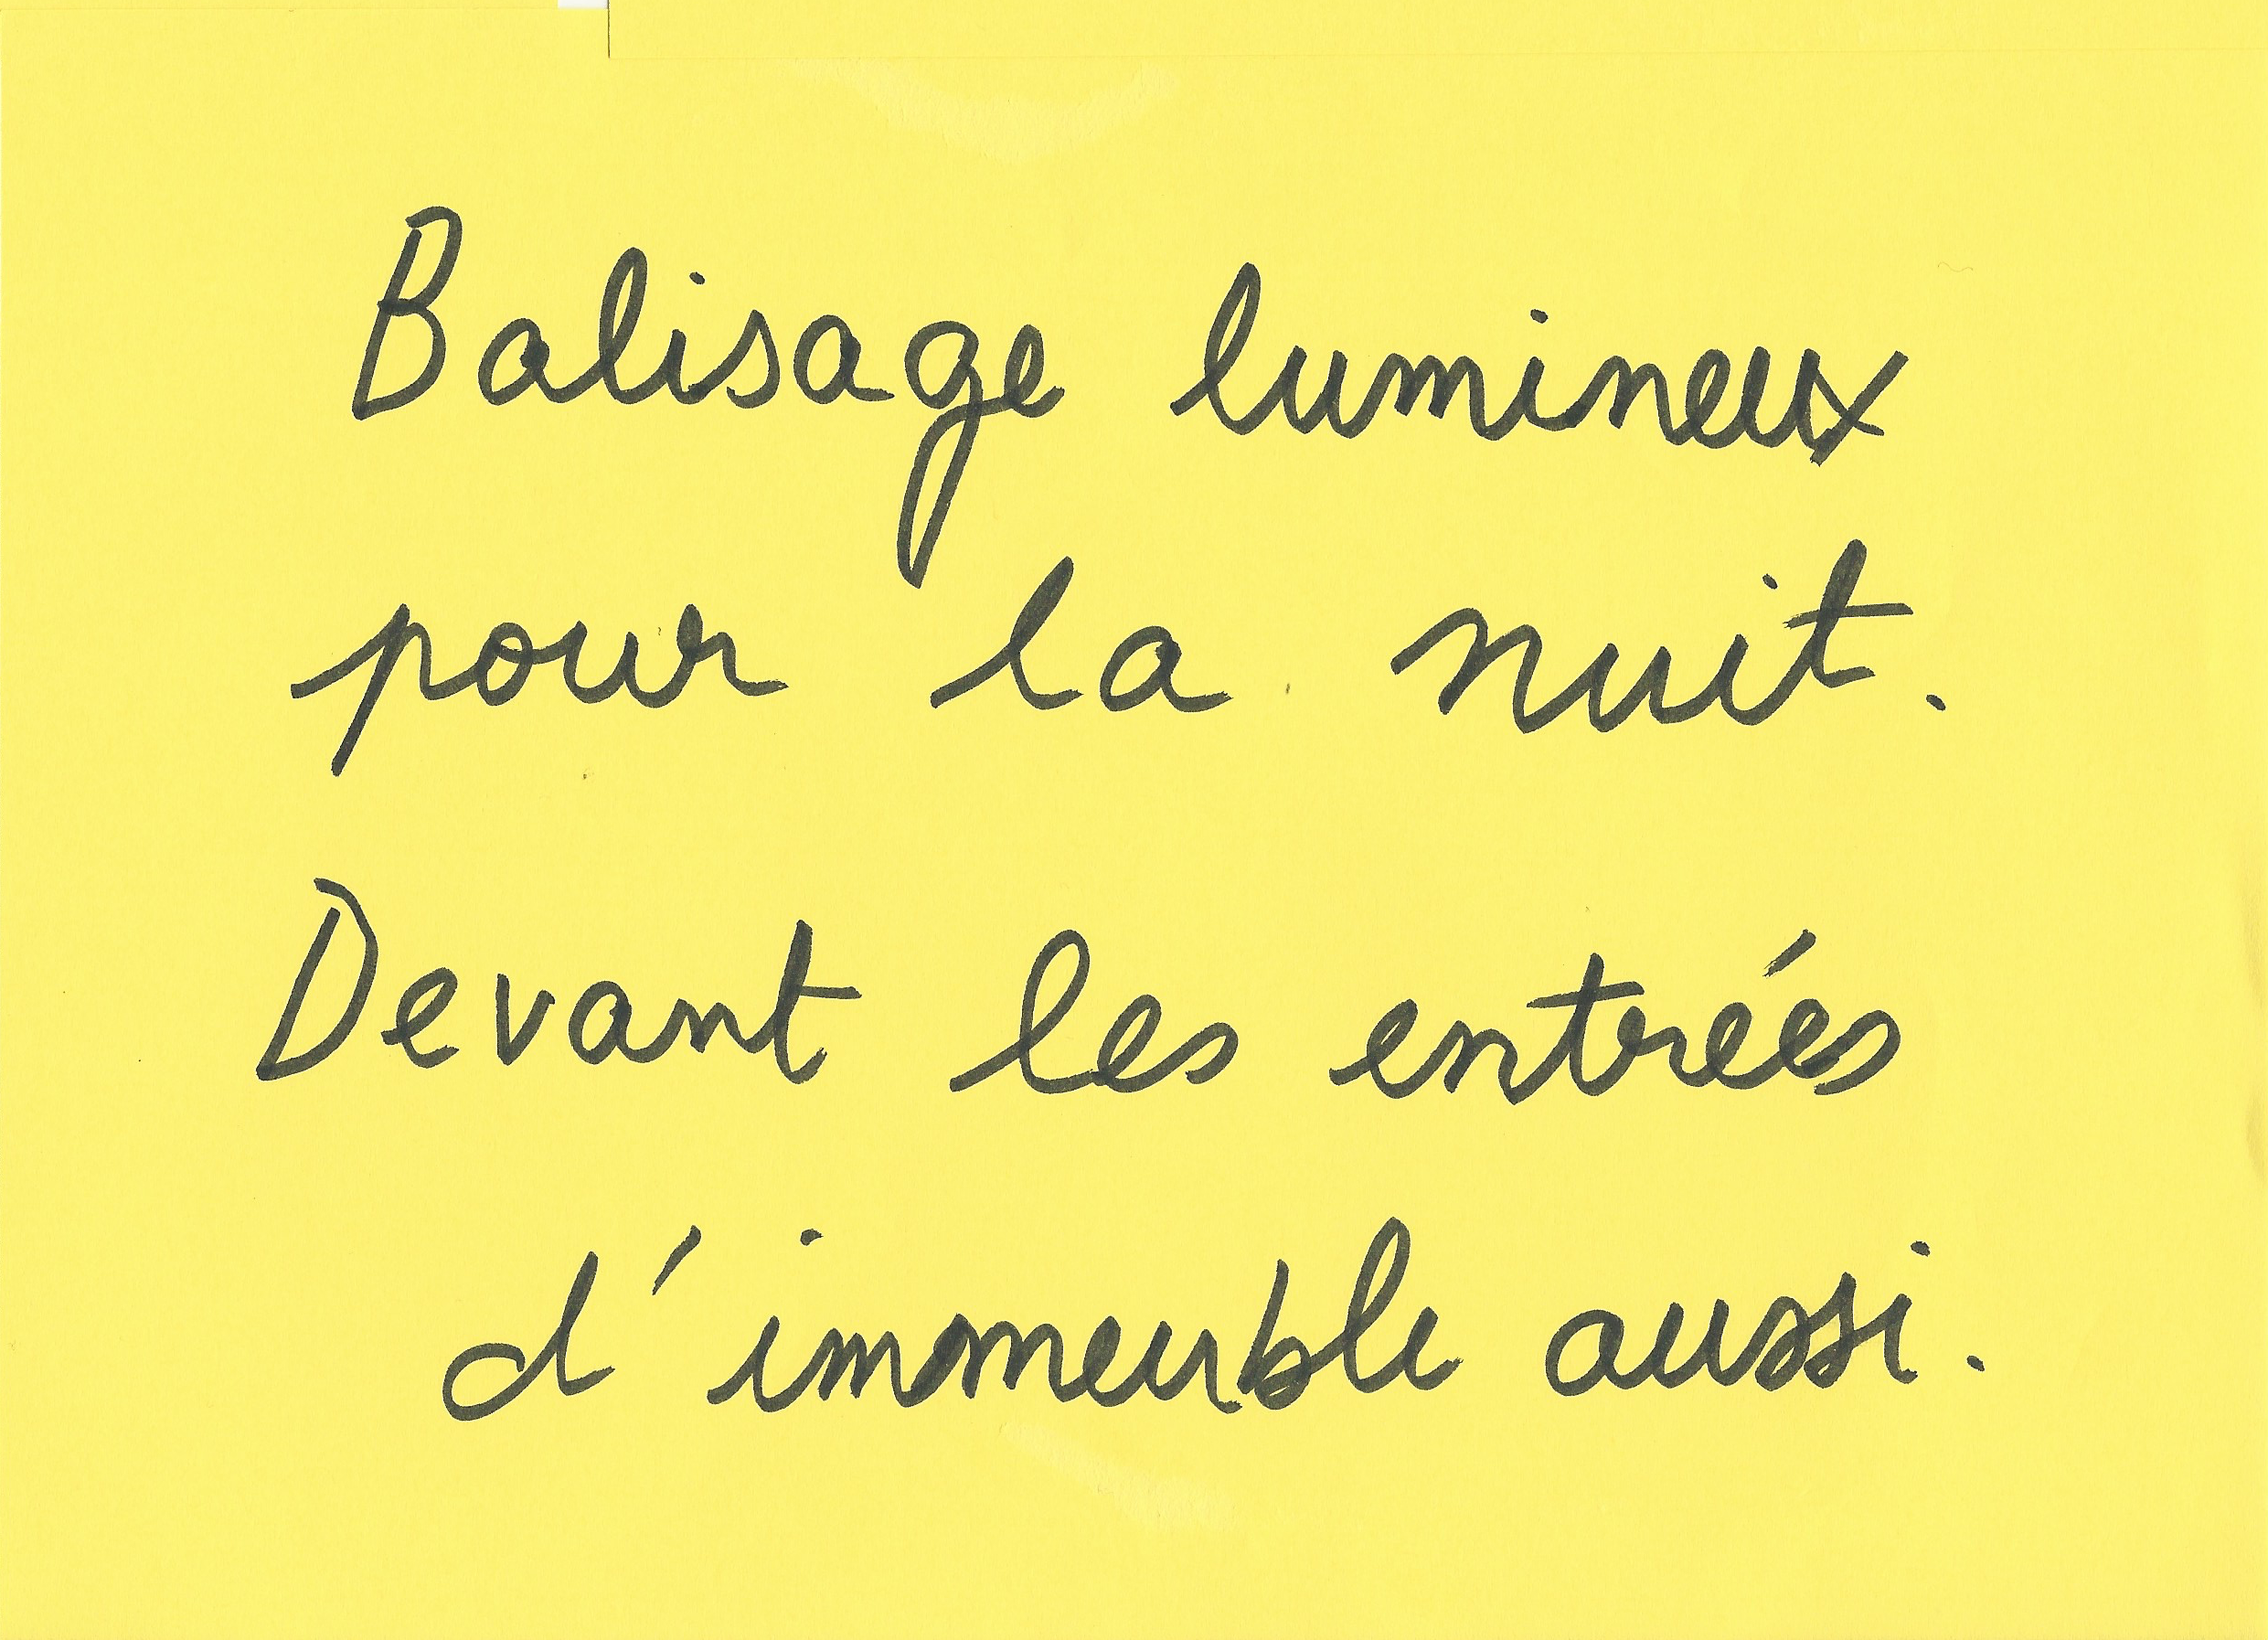 Balisage lumineux
pour la nuit.
Devant les entrées
d'immeuble aussi.